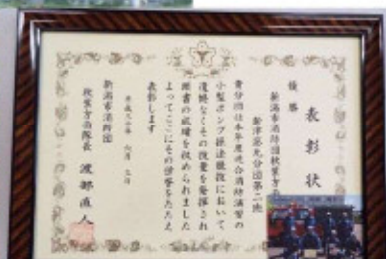 表彰状
優勝
新潟市消防団秋葉方面隊
新津第九分団第二班
貴分団は本年度連合消防演習の
小型ポンプ操法競技において
遺憾なくその技量を発揮され
頭書の成績を収められました
よってここにその栄誉をたたえ
表彰します
平成三十年 六月 九日
新潟市消防団
秋葉方面隊長 渡部直人